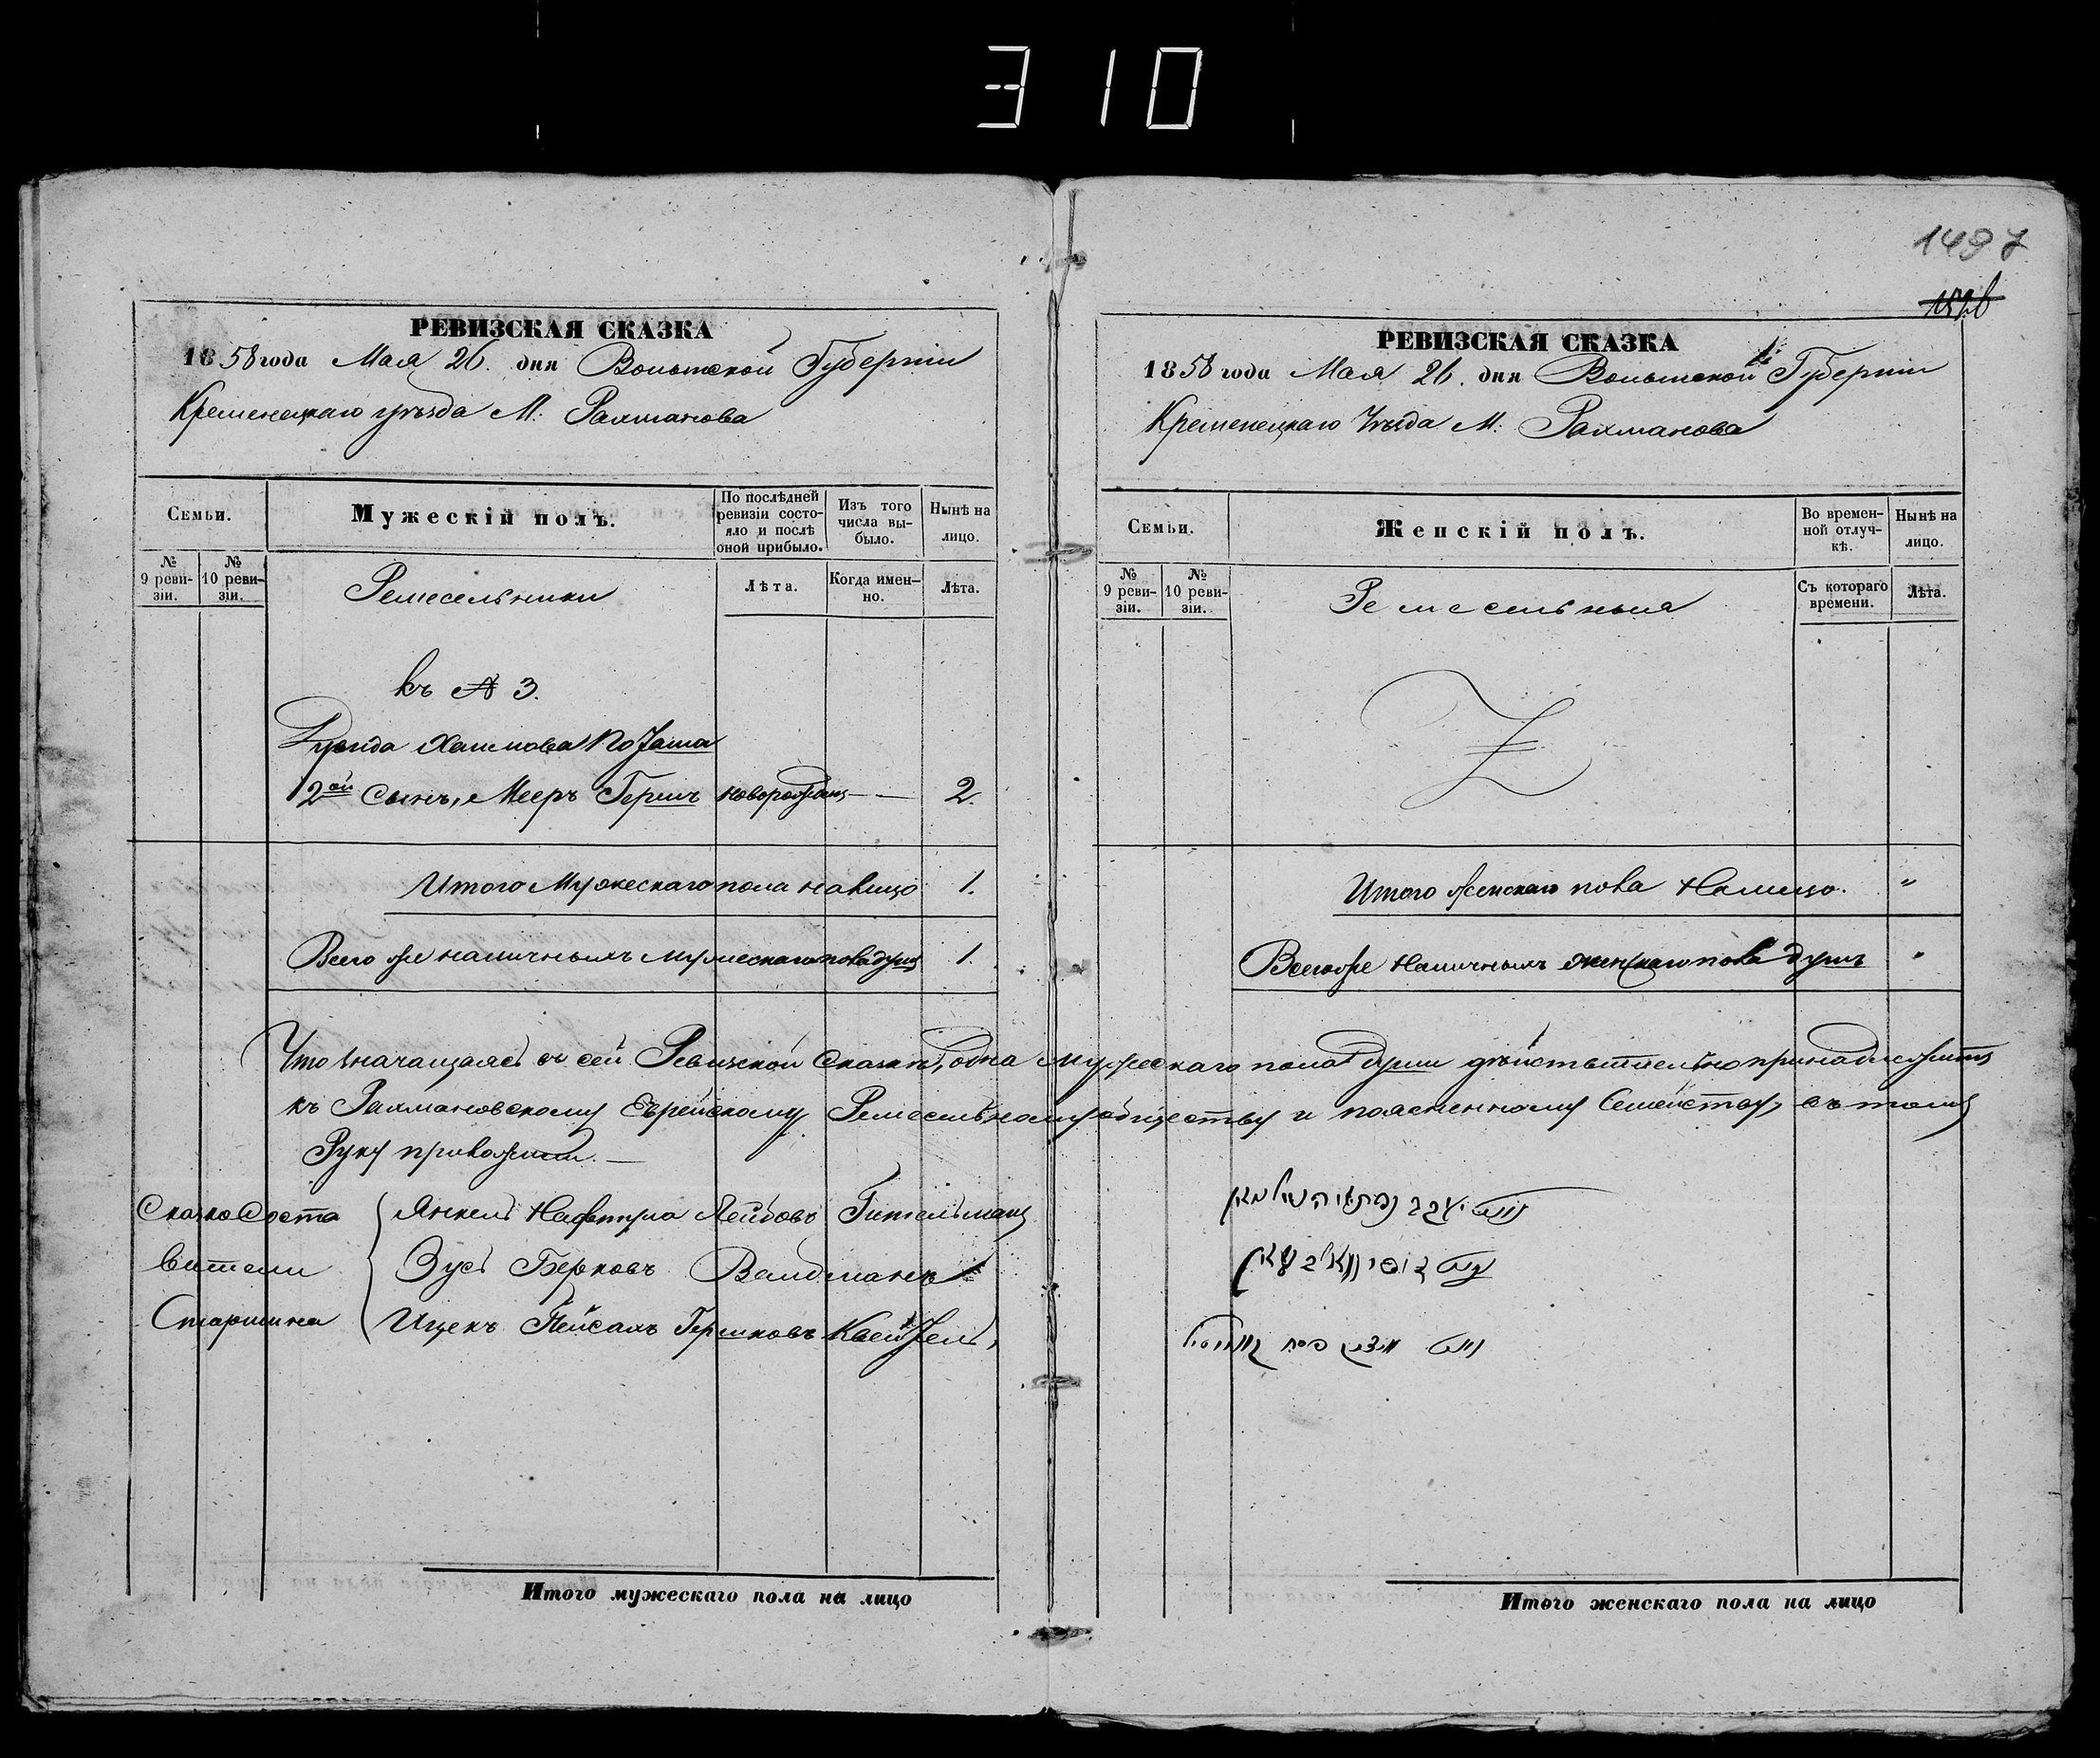 310
1497
1526
РЕВИЗСКАЯ СКАЗКА
1858 года Мая 26. дня Волынской Губернiи
Кременецкаго уѣзда М: Рахманова
Семьи.
Мужескiй полъ.
По послѣдней ревизiи состояло и послѣ оной прибыло.
Изъ того числа выбыло.
Нынѣ на лицо.
№ 9 ревизiи.
№ 10 ревизiи.
Ремесельники
Лѣта.
Когда именно.
Лѣта.
къ № 3.
Дувида Хаимова
2ой Сынъ, Мееръ Гершъ новорожденъ — — 2.
Итого Мужескаго пола налицо 1.
Всего же наличныхъ мужескаго пола душъ 1.
РЕВИЗСКАЯ СКАЗКА
1858 года Мая 26. дня Волынской Губернiи
Кременецкаго Уѣзда М: Рахманова
Семьи.
Женскiй полъ.
Во временной отлучкѣ.
Нынѣ на лицо.
№ 9 ревизiи.
№ 10 ревизiи.
Ремесельныя
Съ котораго времени.
Лѣта.
Итого женскаго пола Налицо. "
Всего же Наличныхъ женскаго пола душъ "
Что значащаяся въ сей Ревизской Сказкѣ, одна мужескаго пола душа дѣйствительно принадлежитъ
къ Рахмановскому Еврейскому Ремесельному обществу и поясненному Семейству, въ томъ
Руку приложили. —
Сказко Соста
вители
Старшина
Янкель Нафтула Лейбовъ Гительманъ
Зусь Берковъ Валдманъ
Ицекъ Пейсахъ Гершковъ
Итого мужескаго пола на лицо
Итого женскаго пола на лицо